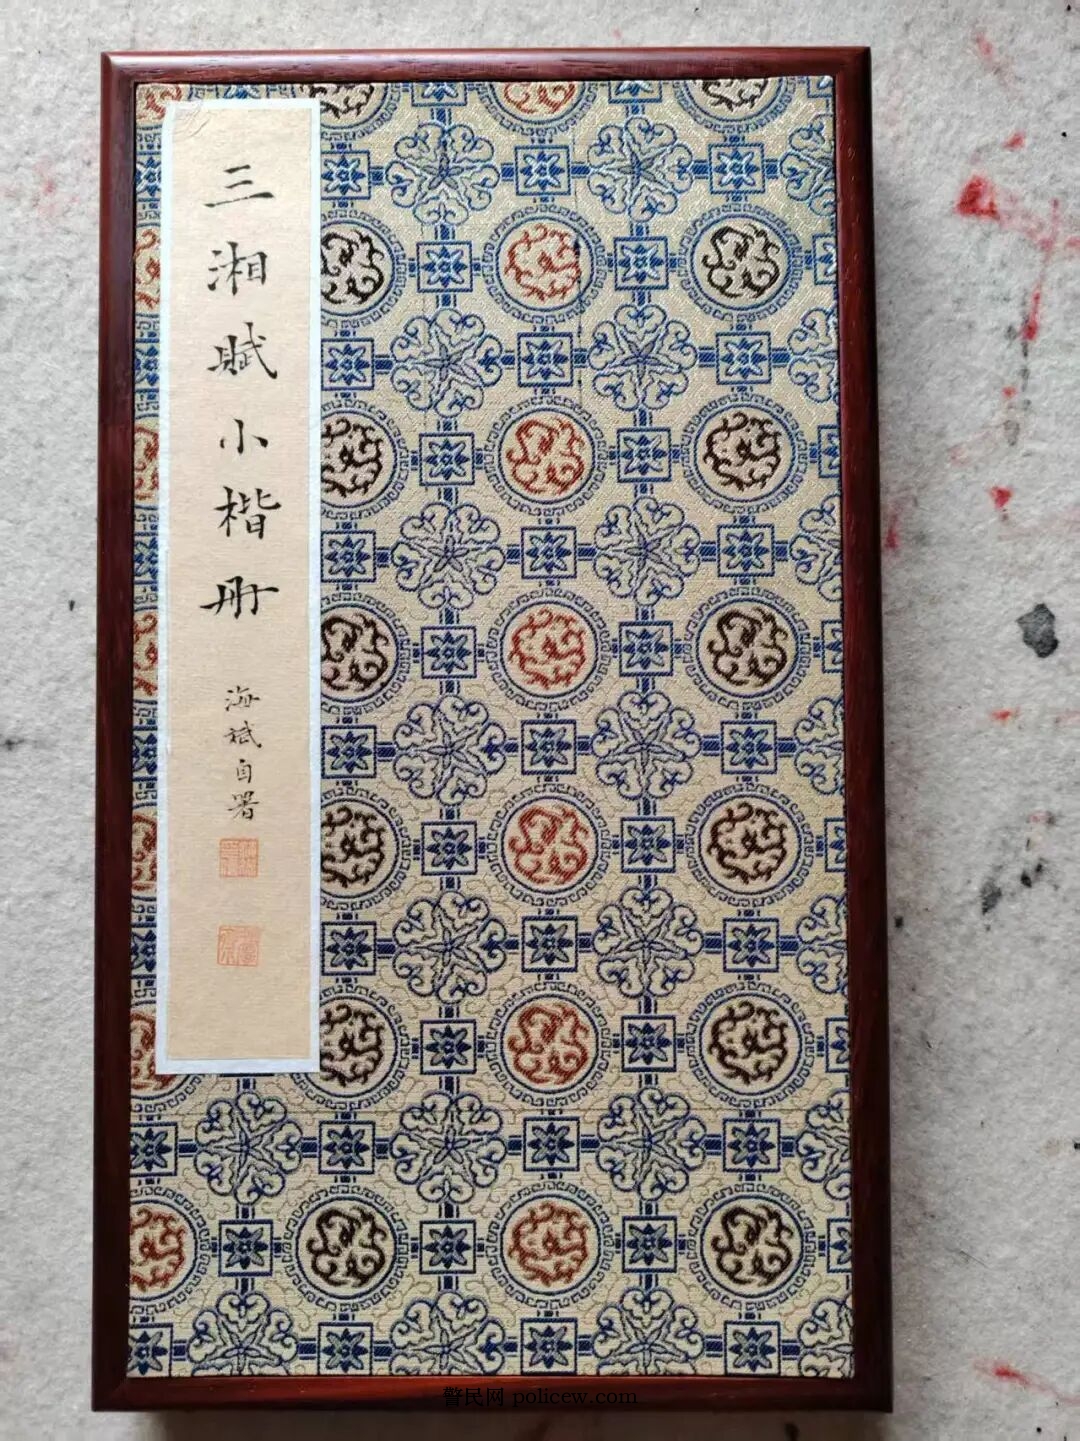 三湘赋小楷册
海斌自署
警民网 policew.com